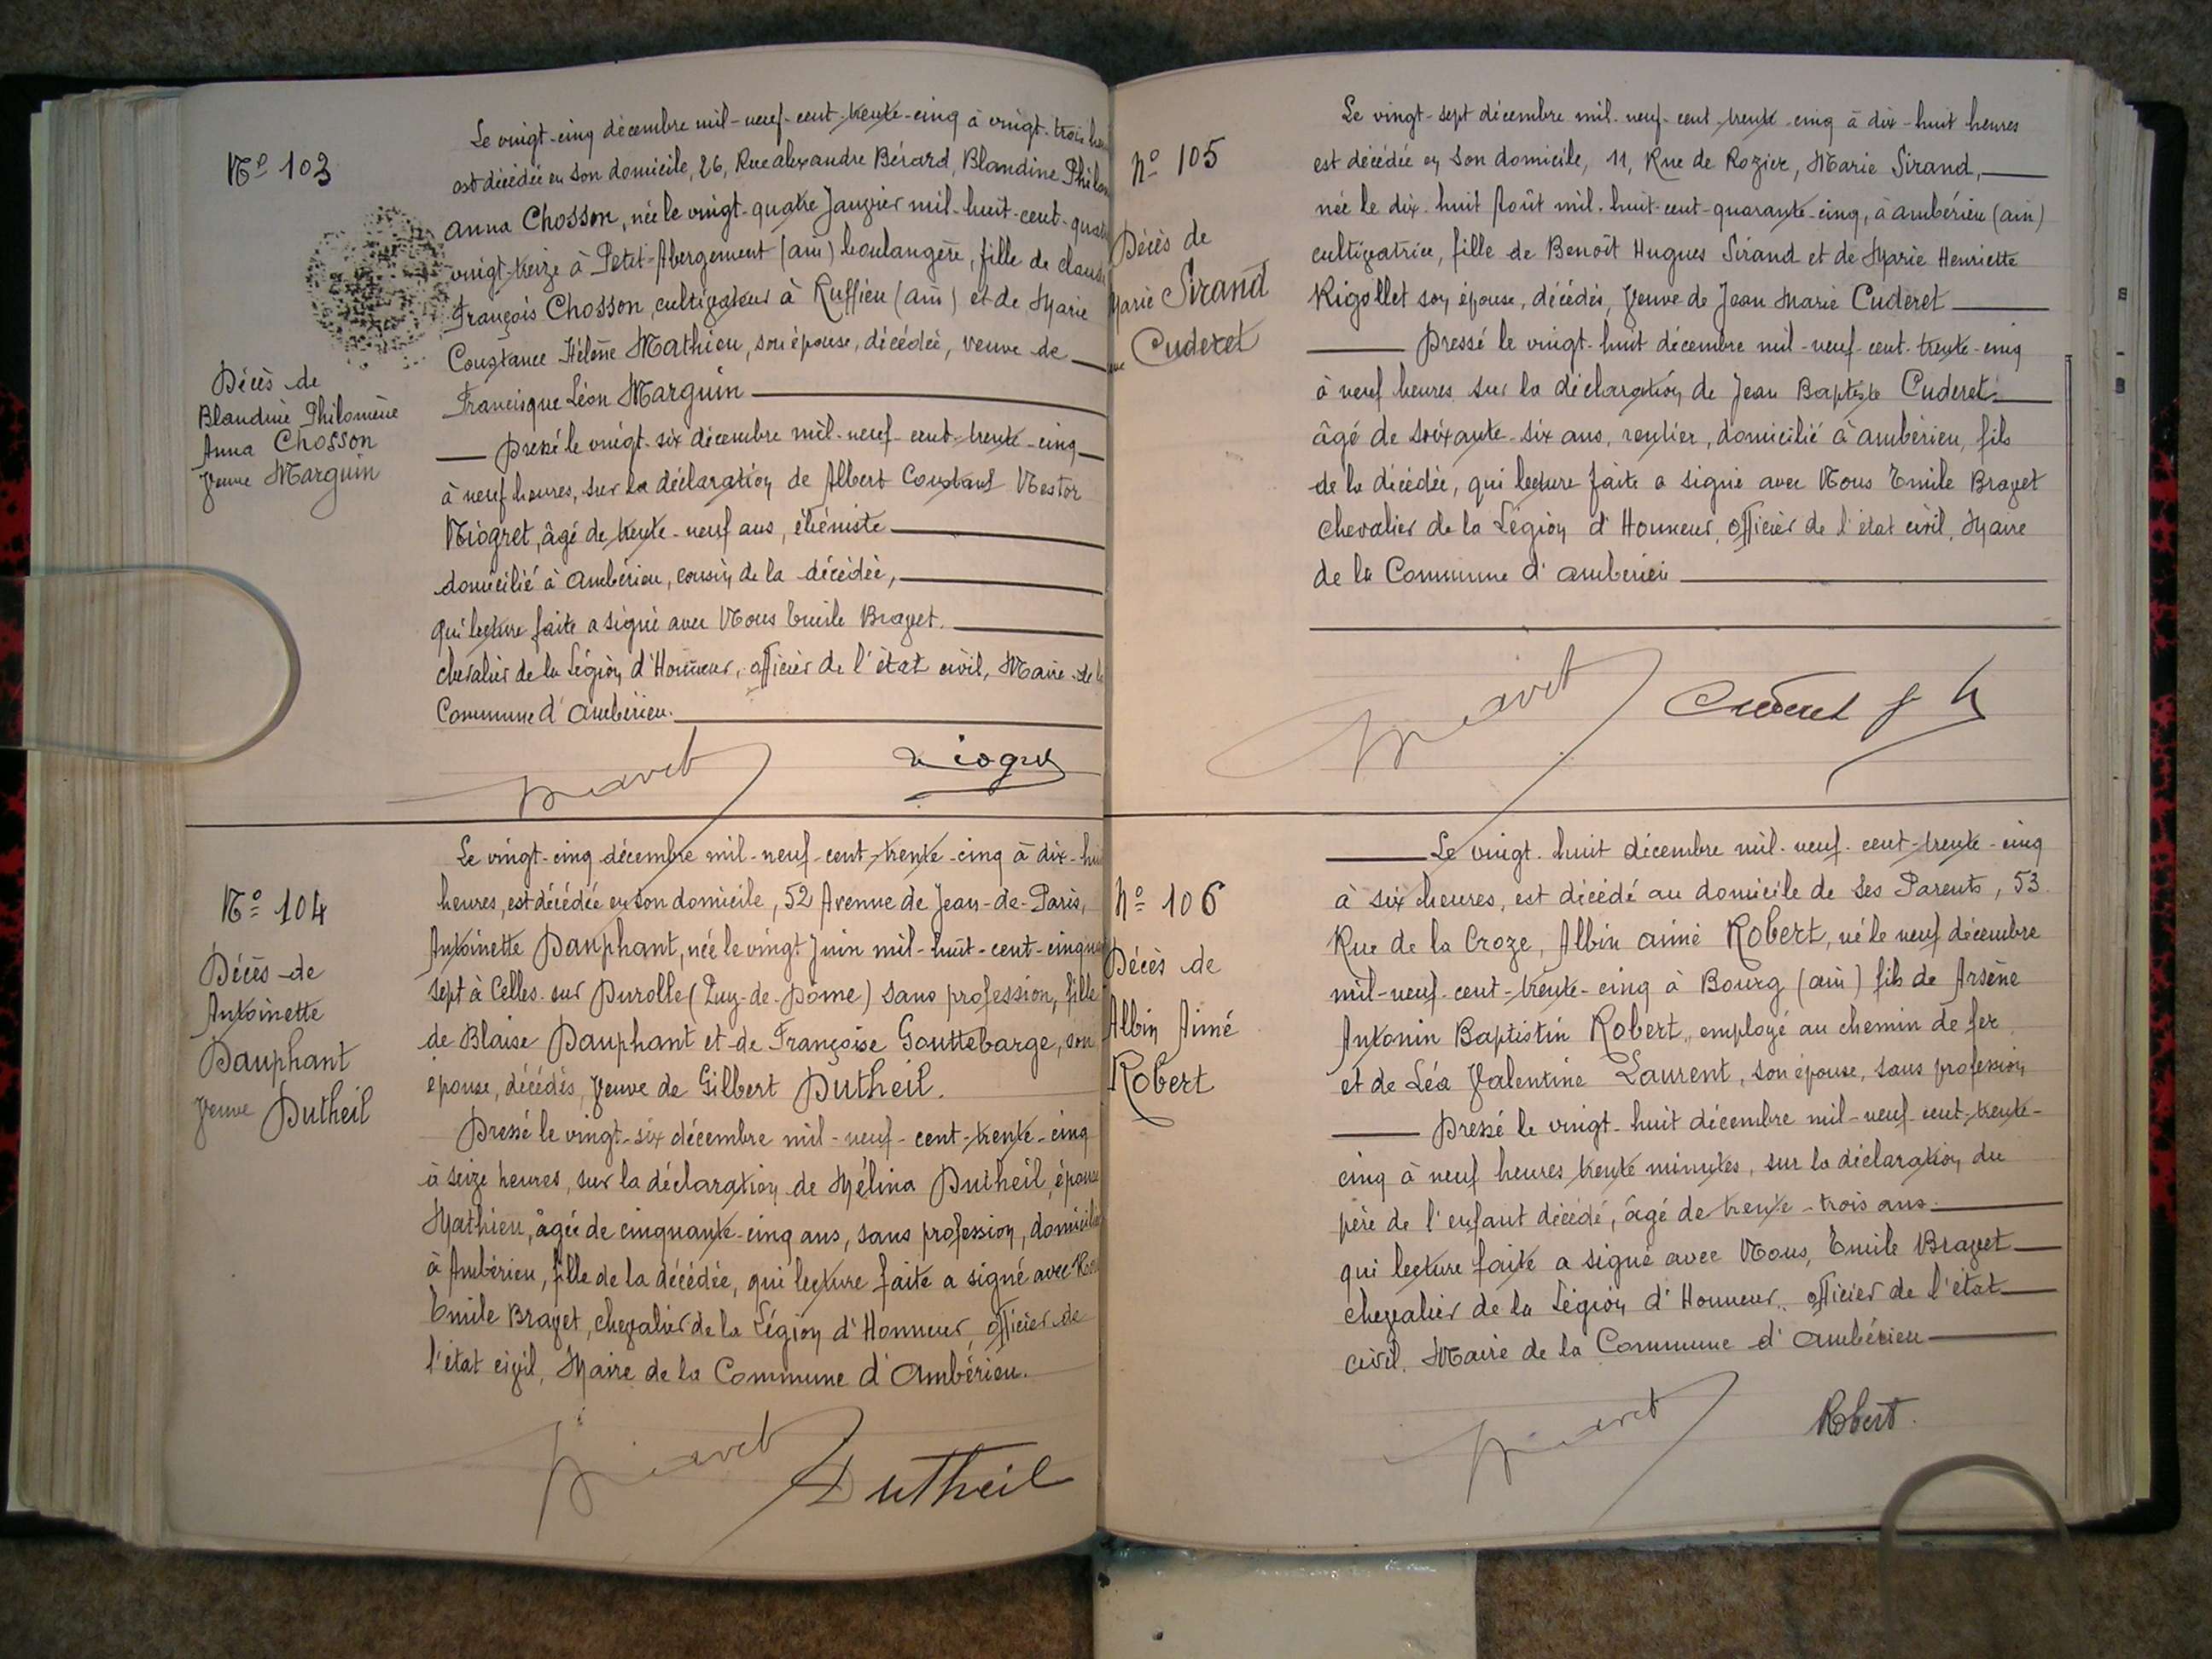 Nº 103
Décès de
Blandine Philomène
Anna Chosson
Veuve Marguin
Le vingt-cinq décembre mil-neuf-cent-trente-cinq à vingt-trois
est décédée en son domicile, 26, Rue alexandre Bérard, Blandine
Anna Chosson, née le vingt-quatre Janvier mil-huit-cent-
vingt-treize à Petit-Abergement (ain) boulangère, fille de
François Chosson, cultivateur à Ruffieu (ain) et de Marie
Constance Hélène Mathieu, son épouse, décédée, veuve de
Francisque Léon Marguin
Dressé le vingt-six décembre mil-neuf-cent-trente-cinq
à neuf heures, sur la déclaration de Albert Constant Nestor
Niogret, âgé de trente-neuf ans, ébéniste
domicilié à Ambérieu, cousin de la décédée,
qui lecture faite a signé avec Nous Emile Bravet.
chevalier de la Légion d'Honneur, officier de l'état civil, Maire de
Commune d'Ambérieu.
Bravet Niogret
Nº 104
Décès de
Antoinette
Dauphant
Veuve Dutheil
Le vingt-cinq décembre mil-neuf-cent-trente-cinq à dix-
heures, est décédée en son domicile, 52 Avenue de Jean-de-Paris,
Antoinette Dauphant, née le vingt Juin mil-huit-cent-
sept à Celles-sur Durolle (Puy-de-Dôme) sans profession, fille
de Blaise Dauphant et de Françoise Gouttebarge, son
épouse, décédés, Veuve de Gilbert Dutheil.
Dressé le vingt-six décembre mil-neuf-cent-trente-cinq
à seize heures, sur la déclaration de Mélina Dutheil, épouse
Mathieu, âgée de cinquante-cinq ans, sans profession,
à Ambérieu, fille de la décédée, qui lecture faite a signé avec
Emile Bravet, chevalier de la Légion d'Honneur, officier de
l'état civil, Maire de la Commune d'Ambérieu.
Bravet Dutheil
Nº 105
Décès de
Marie Sirand
Cuderet
Le vingt-sept décembre mil-neuf-cent-trente-cinq à dix-huit heures
est décédée en son domicile, 11, Rue de Rozier, Marie Sirand,
née le dix-huit Août mil-huit-cent-quarante-cinq, à ambérieu (ain)
cultivatrice, fille de Benoît Hugues Sirand et de Marie Henriette
Rigollet son épouse, décédés, Veuve de Jean Marie Cuderet
Dressé le vingt-huit décembre mil-neuf-cent-trente-cinq
à neuf heures sur la déclaration de Jean Baptiste Cuderet.
âgé de soixante-six ans, rentier, domicilié à ambérieu, fils
de la décédée, qui lecture faite a signé avec Nous Emile Bravet
chevalier de la Légion d'Honneur, officier de l'état civil, Maire
de la Commune d'ambérieu
Bravet Cuderet
Nº 106
Décès de
Albin Aimé
Robert
Le vingt-huit décembre mil-neuf-cent-trente-cinq
à six heures, est décédé au domicile de ses Parents, 53
Rue de la Croze, Albin aimé Robert, né le neuf décembre
mil-neuf-cent-trente-cinq à Bourg (ain) fils de Arsène
Antonin Baptistin Robert, employé au chemin de fer
et de Léa Valentine Laurent, son épouse, sans profession
Dressé le vingt-huit décembre mil-neuf-cent-trente-
cinq à neuf heures trente minutes, sur la déclaration du
père de l'enfant décédé, âgé de trente-trois ans.
qui lecture faite a signé avec Nous, Emile Bravet
chevalier de la Légion d'Honneur, officier de l'état
civil. Maire de la Commune d'Ambérieu
Bravet Robert.